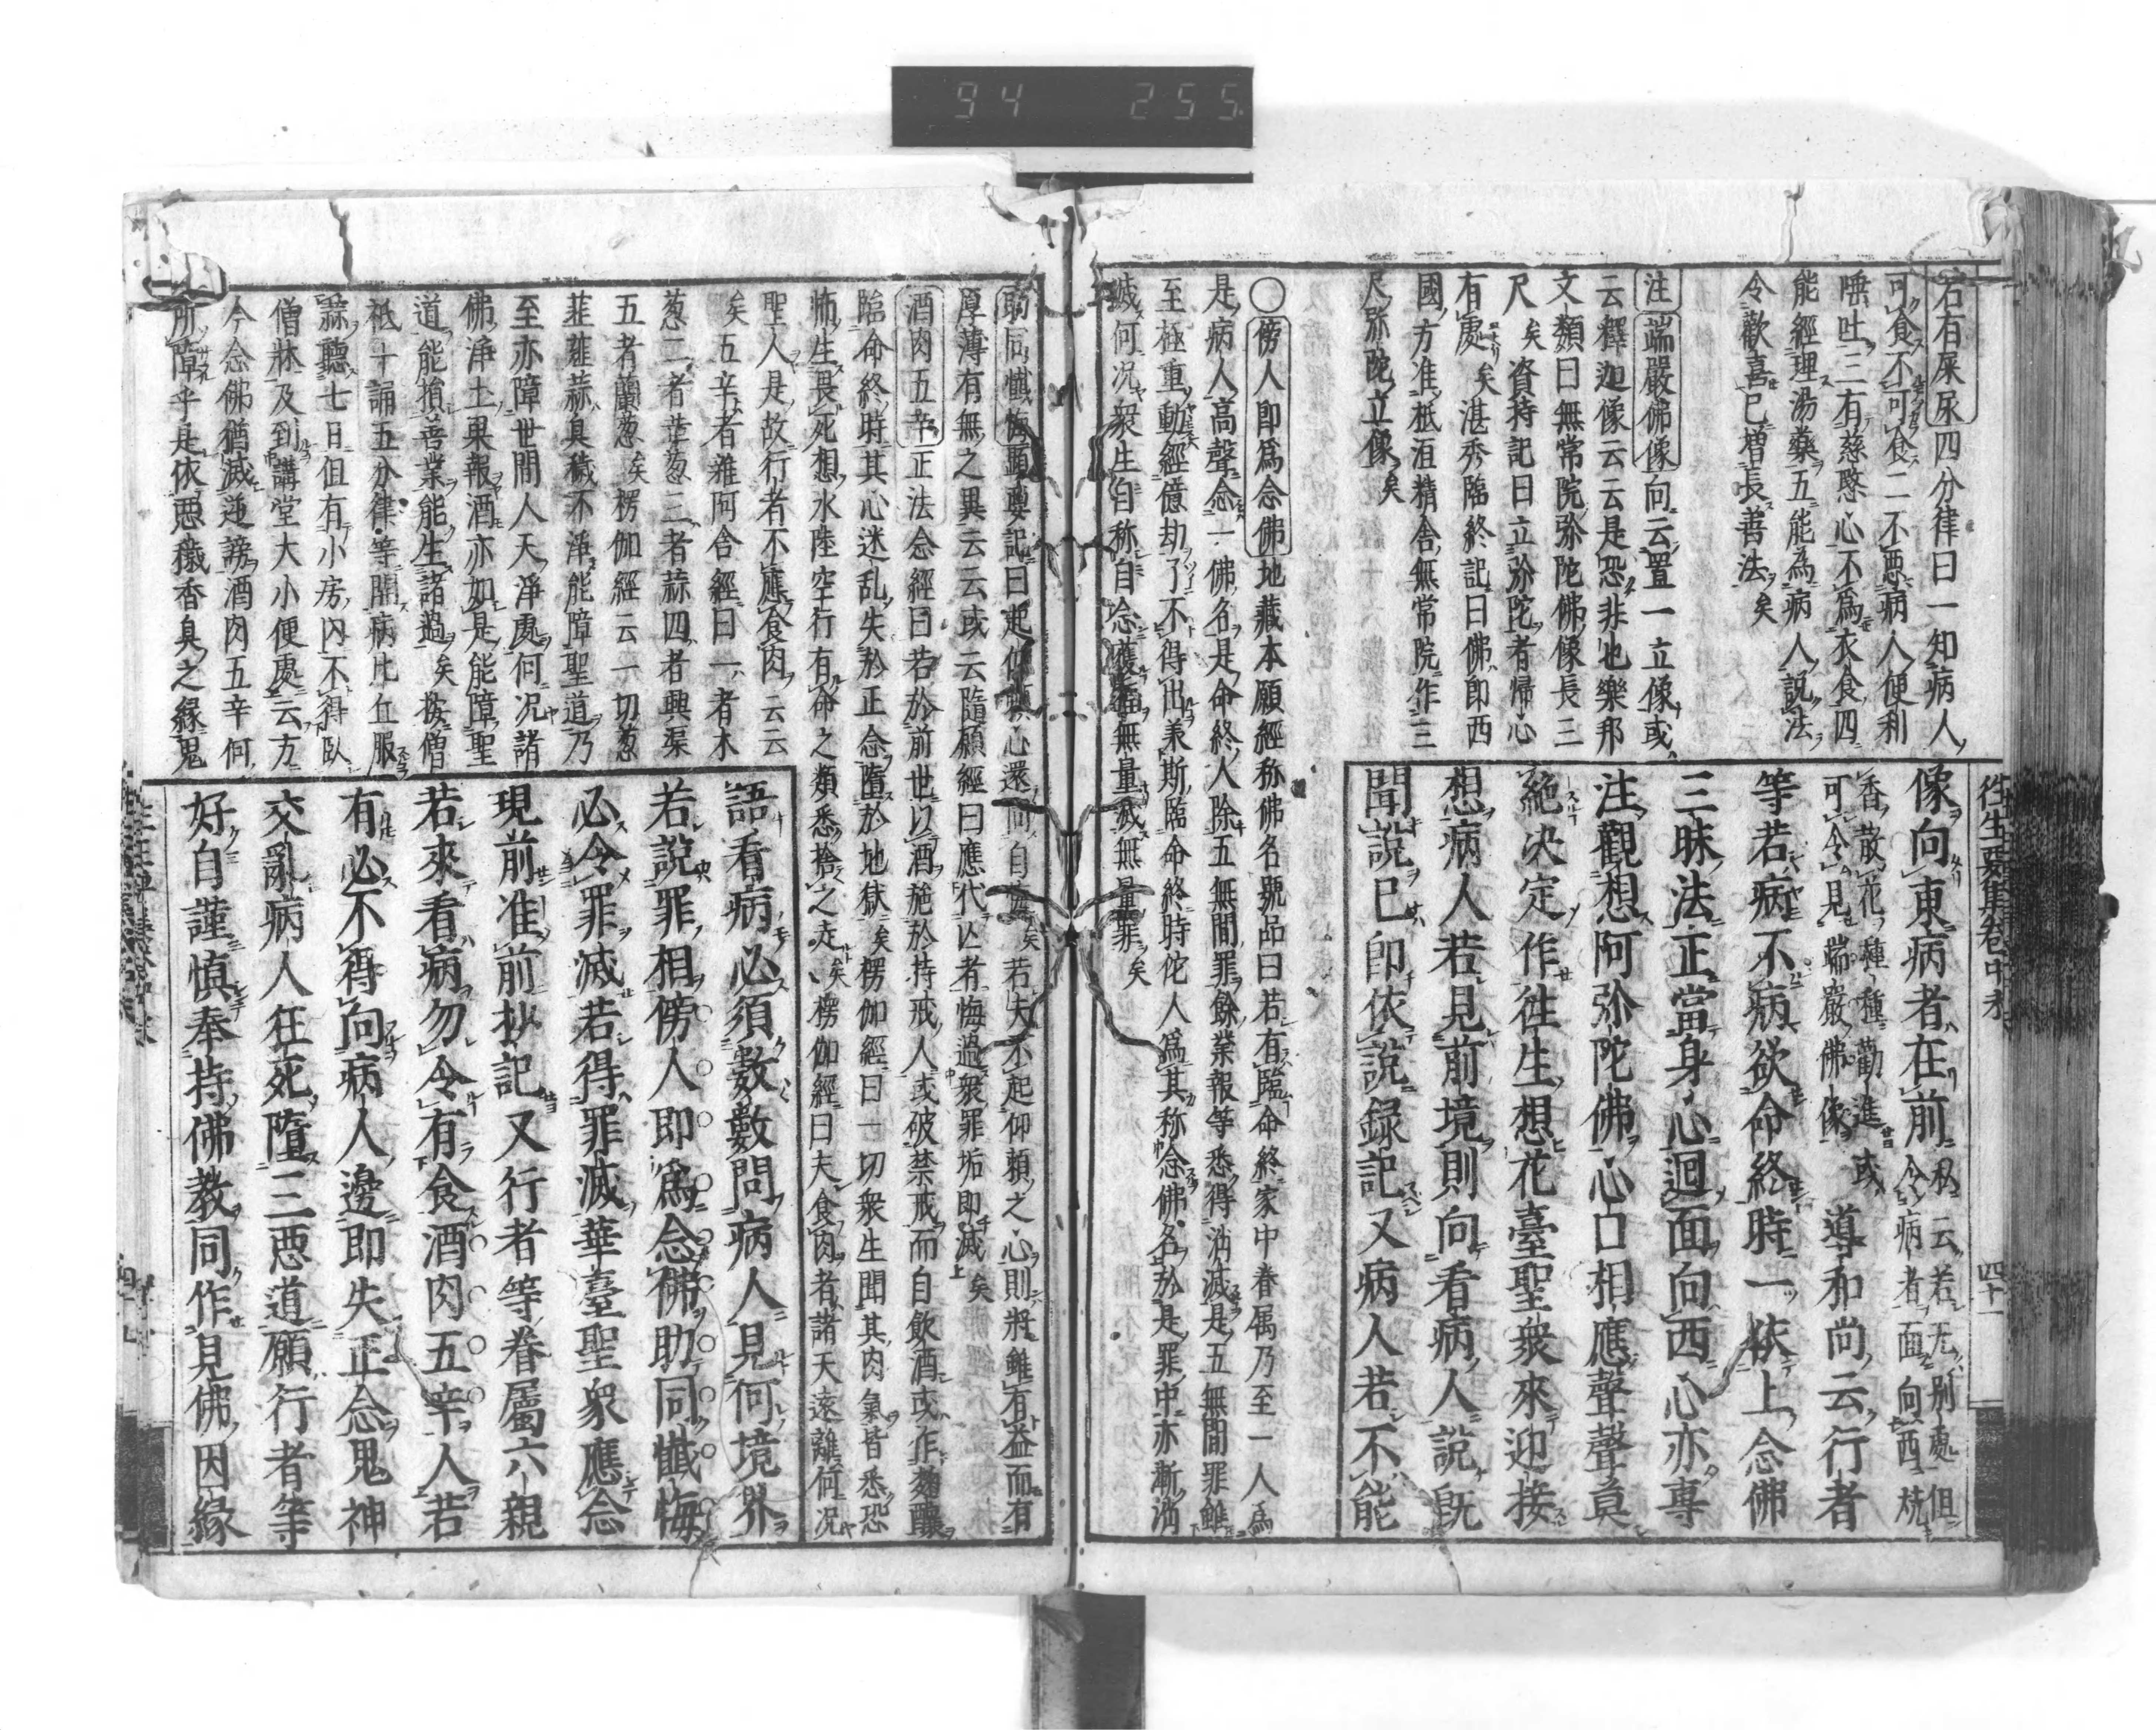 94 255
宕有屎尿四分律曰一知病人
可食不可食二不惡病人便利
唾吐三有慈愍心不爲衣食四
能經理湯藥五能為病人說法
令歡喜已増長善法矣
注端嚴佛像向云置一立像或
云釋迦像云云是恐非也樂邦
文類曰無常院弥陀佛像長三
尺矣資持記曰立弥陀者帰心
有處矣湛秀臨終記曰佛即西
國方准祇洹精舎無常院作三
尺弥陀立像矣
○傍人即爲念佛地藏本願經称佛名號品曰若有臨命終家中眷属乃至一人爲
是病人高聲念一佛名是命終人除五無間罪餘業報等悉得消滅是五無間罪雖
至極重動經億劫了不得出兼斯臨命終時佗人爲其称念佛名於是罪中亦漸消
滅何况衆生自称自念獲福無量滅無量罪矣
往生要集巻中末
四十一
像向東病者在前私云若无別處但
令病者面向西焼
香散花種種勸進或
可令見端嚴佛像
導和尚云行者
等若病不病欲命終時一依上念佛
三昧法正當身心迴面向西心亦專
注觀想阿弥陀佛心口相應聲聲莫
絶决定作徃生想花臺聖衆來迎接
想病人若見前境則向看病人說既
聞說已即依說録記又病人若不能
助同懺悔顯要記曰起仰頼心還向自悔矣若夫不起仰頼之心則將雖有益而有
厚薄有無之異云云或云隨願經曰應代亾者悔過衆罪垢即滅矣
酒肉五辛正法念經曰若於前世以酒施於持戒人或破禁戒而自飲酒或作麹釀
臨命終時其心迷乱失於正念墮於地獄矣楞伽經曰一切衆生聞其肉氣皆悉恐
怖生畏死想水陸空行有命之類悉捨之走矣楞伽經曰夫食肉者諸天遠離何况
聖人是故行者不應食肉云云
矣五辛者雜阿含經曰一者木
葱二者革葱三者蒜四者興渠
五者蘭葱矣楞伽經云一切葱
韮薤蒜臭穢不淨能障聖道乃
至亦障世間人天淨處何况諸
佛淨土果報酒亦如是能障聖
道能損善業能生諸過矣按僧
祇十誦五分律等開病比丘服
蒜聽七日但有小房内不得臥
僧牀及到講堂大小便處云方
今念佛猶滅逆謗酒肉五辛何
所障乎是依惡穢香臭之縁鬼
語看病必須數數問病人見何境界
若說罪相傍人即爲念佛助同懺悔
必令罪滅若得罪滅華臺聖衆應念
現前准前抄記又行者等眷屬六親
若來看病勿令有食酒肉五辛人若
有必不得向病人邊即失正念鬼神
交亂病人狂死墮三惡道願行者等
好自謹慎奉持佛教同作見佛因緣